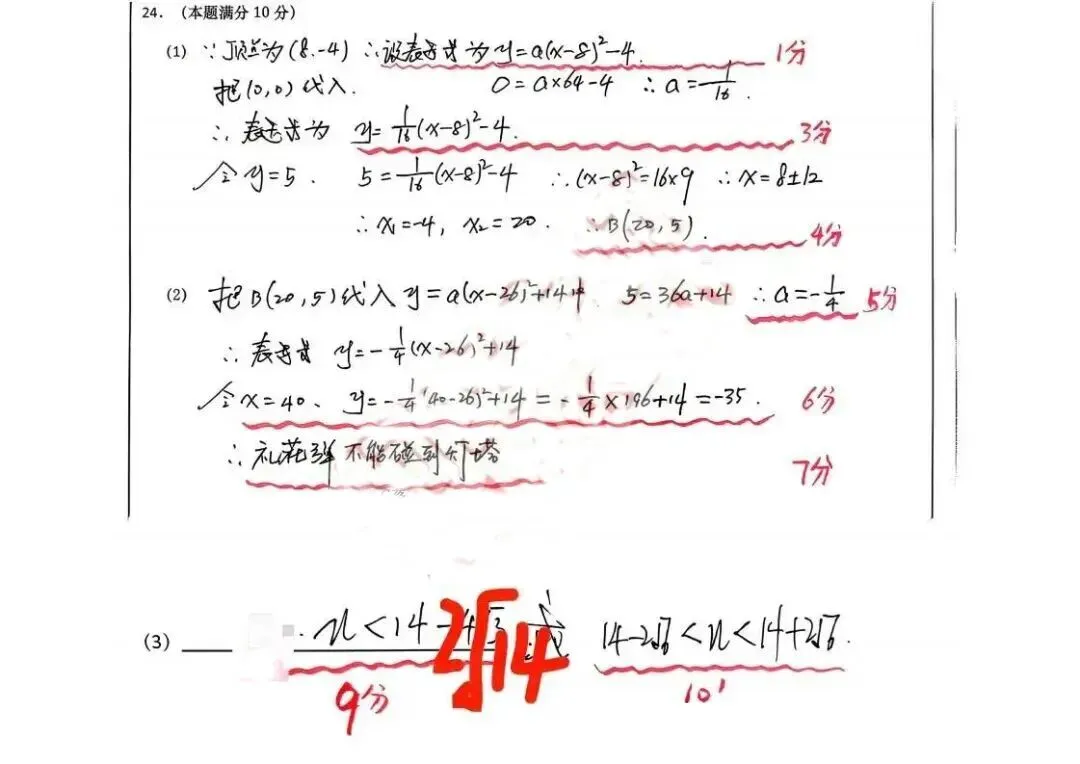 24. (本题满分 10 分)
(1) ∵顶点为(8,-4) ∴设表达式为 y=a(x-8)²-4. 1分
把(0,0)代入. 0=a×64-4 ∴a=1/16.
∴表达式为 y=1/16(x-8)²-4. 3分
令y=5. 5=1/16(x-8)²-4 ∴(x-8)²=16×9 ∴x=8±12
∴x₁=-4, x₂=20. ∴B(20,5). 4分
(2) 把B(20,5)代入y=a(x-26)²+14中 5=36a+14 ∴a=-1/4 5分
∴表达式 y=-1/4(x-26)²+14
令x=40、 y=-1/4(40-26)²+14=-1/4×196+14=-35. 6分
∴礼花弹不能碰到灯塔 7分
(3) n<14-2√14 14-2√6<n<14+2√6.
9分 10'